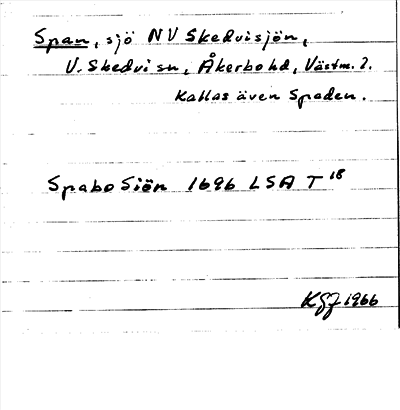 Span, sjö NV Skedvisjön,
V. Skedvi sn, Åkerbo hd, Västm. l.
Kallas även Spaden.
Spabo Siön 1696 LSA T 18
KGJ 1966